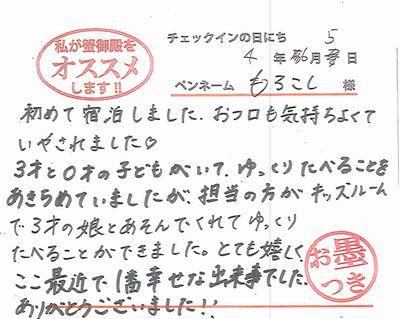 私が蟹御殿を
オススメ
します!!
チェックインの日にち
5
4年 月 日
ペンネーム もろこし 様
初めて宿泊しました。おフロも気持ちよくて
いやされました♡
3才と0才の子どもがいて、ゆっくりたべることを
あきらめていましたが、担当の方がキッズルーム
で3才の娘とあそんでくれてゆっくり
たべることができました。とても嬉しく
ここ最近で1番幸せな出来事でした。
ありがとうございました!!
お墨
つき